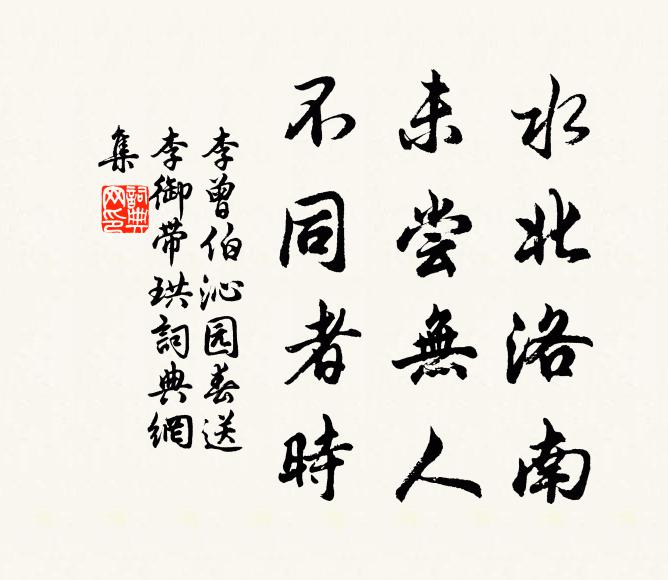 水北洛南
未尝無人
不同者時
李曾伯沁园春送
李御带珙詞典網
集
詞典
网印